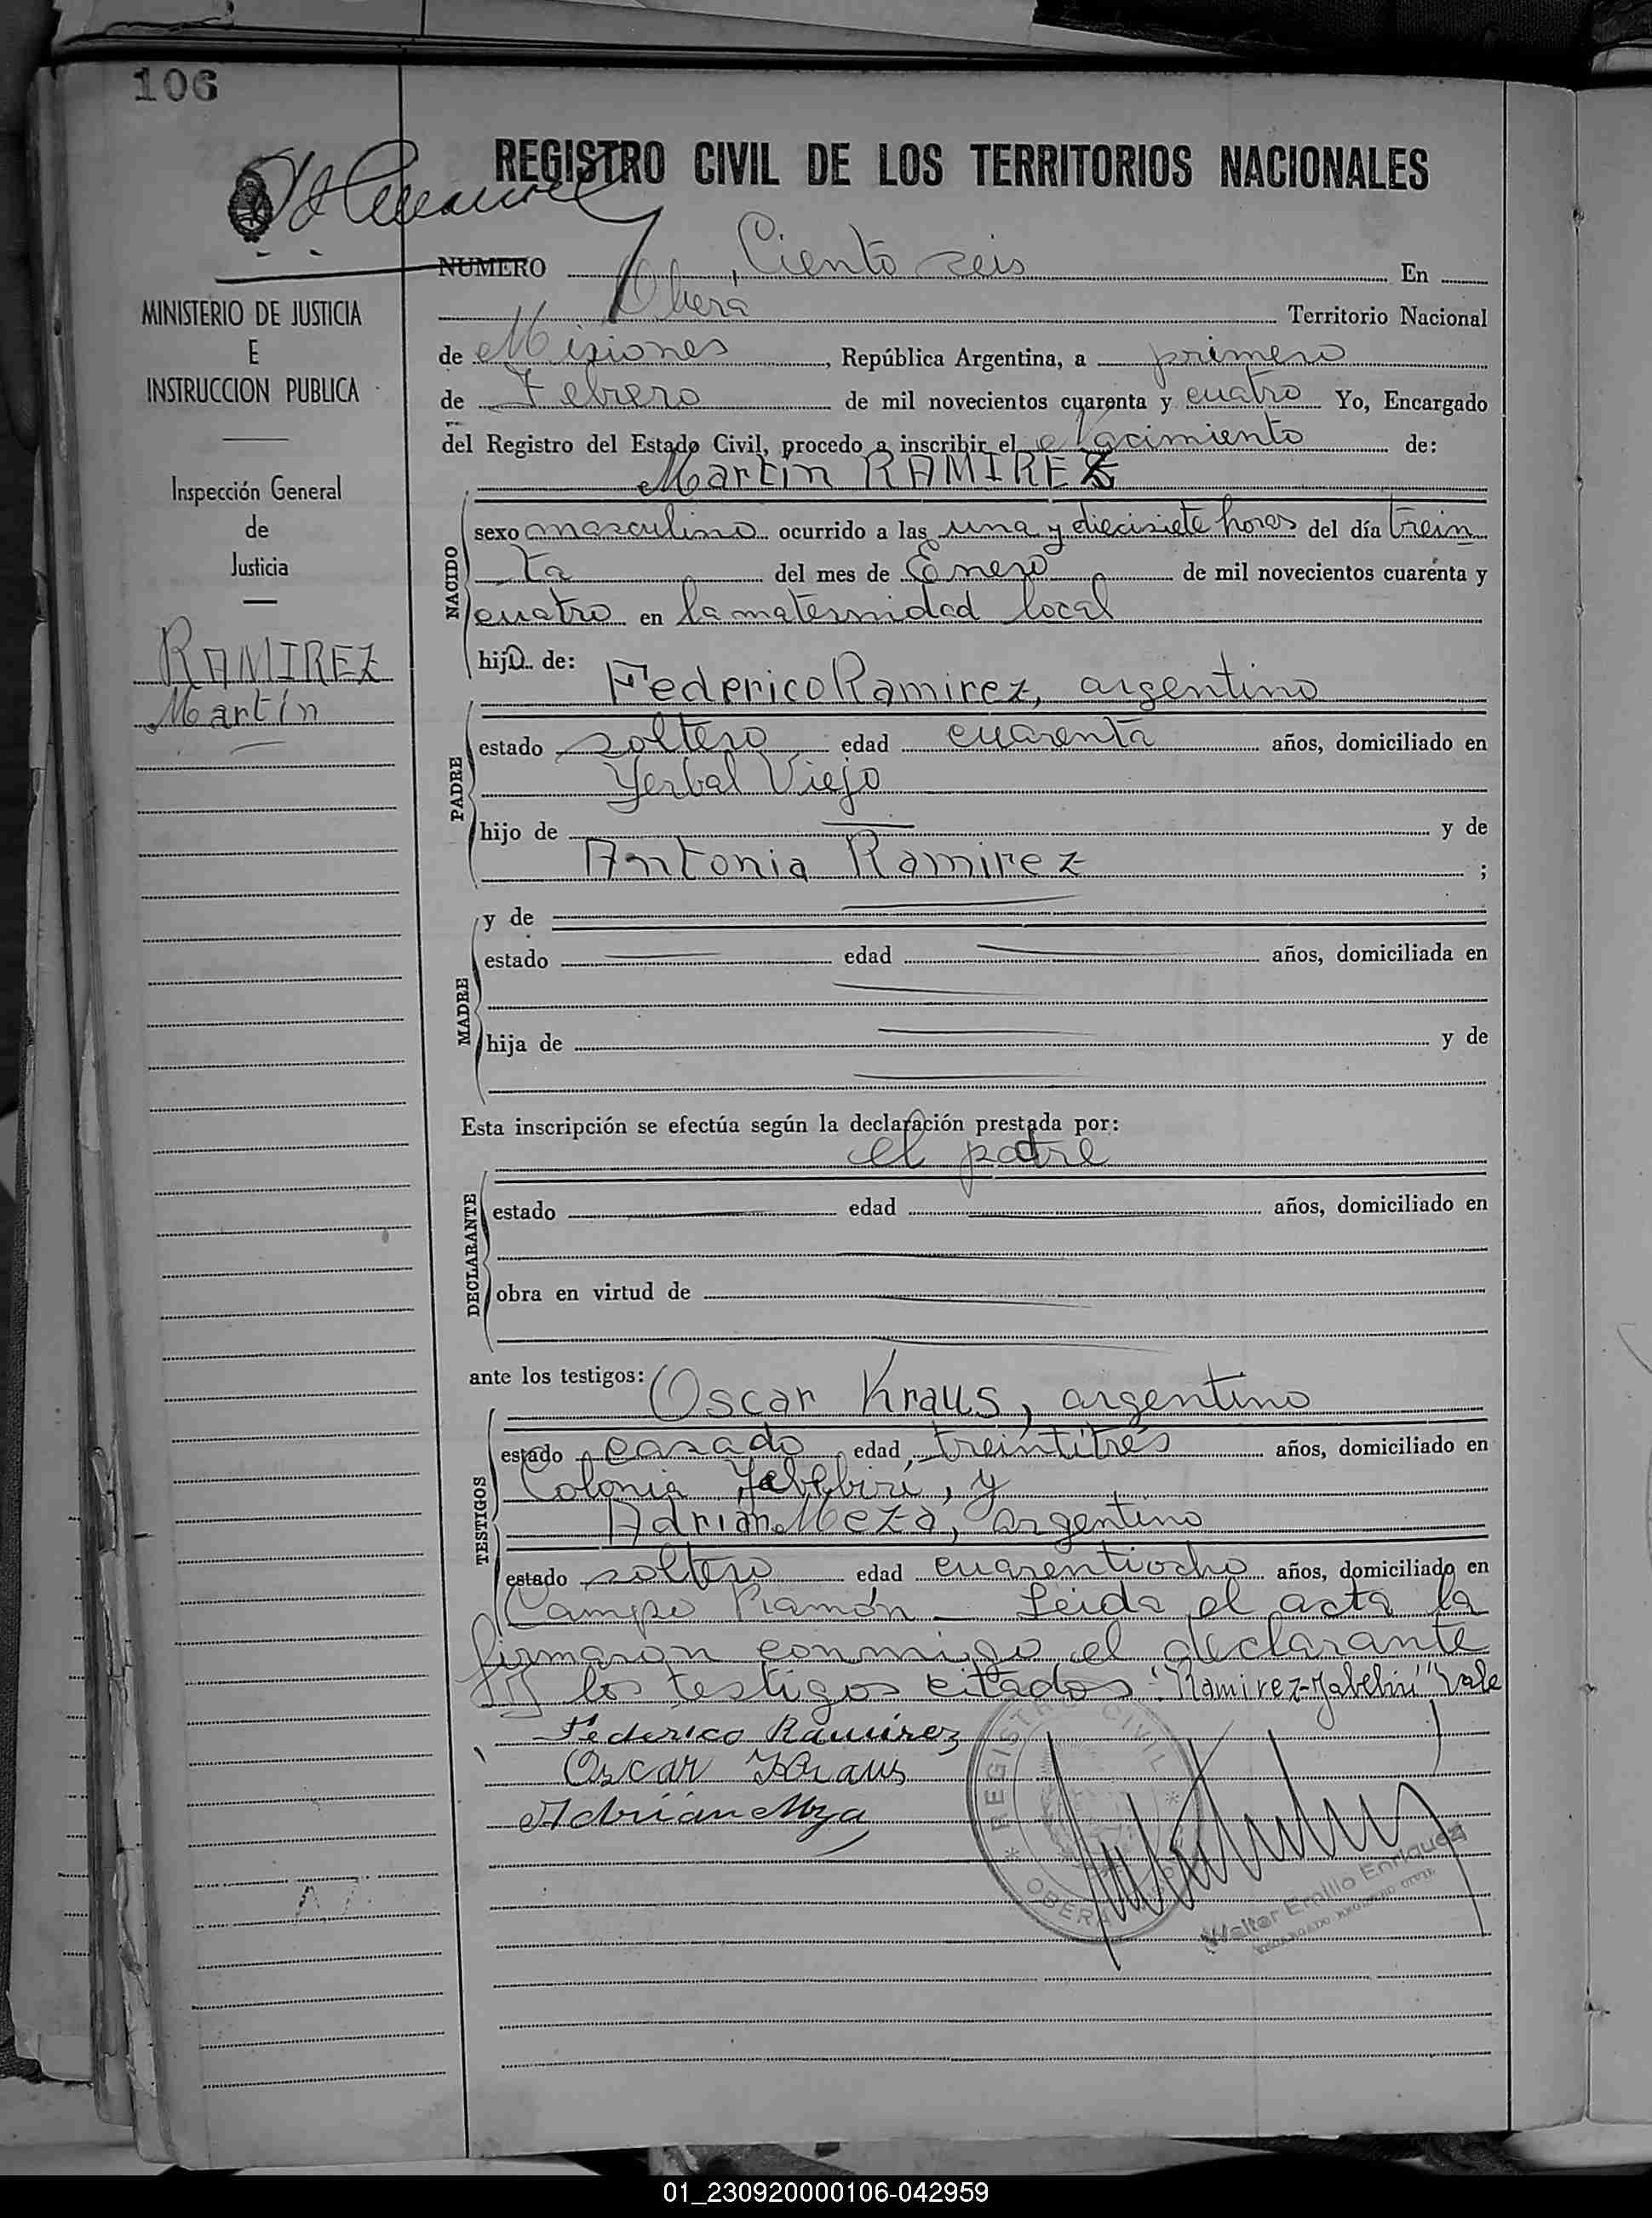 106
REGISTRO CIVIL DE LOS TERRITORIOS NACIONALES
NUMERO Ciento seis En
Oberá Territorio Nacional
de Misiones, República Argentina, a primero
de Febrero de mil novecientos cuarenta y cuatro Yo, Encargado
del Registro del Estado Civil, procedo a inscribir el Nacimiento de:
Martín RAMIREZ
NACIDO
sexo masculino ocurrido a las una y diecisiete horas del día trein
ta del mes de Enero de mil novecientos cuarenta y
cuatro en la maternidad local
hijo de:
Federico Ramirez, argentino
PADRE
estado soltero edad cuarenta años, domiciliado en
Yerbal Viejo
hijo de y de
Antonia Ramirez ;
MADRE
y de
estado edad años, domiciliada en
hija de y de
Esta inscripción se efectúa según la declaración prestada por:
el padre
DECLARANTE
estado edad años, domiciliado en
obra en virtud de
ante los testigos:
Oscar Kraus, argentino
TESTIGOS
estado casado edad treintitrés años, domiciliado en
Colonia Yabebirí, y
Adrian Meza, argentino
estado soltero edad cuarentiocho años, domiciliado en
Campo Ramón – Leida el acta la
firmaron conmigo el declarante
y los testigos citados "Ramirez-Yabebiri" Vale
Federico Ramirez
Oscar Kraus
Adrián Meza
REGISTRO CIVIL
OBERA
Walter Emilio Enriquez
ENCARGADO REGISTRO CIVIL
MINISTERIO DE JUSTICIA
E
INSTRUCCION PUBLICA
Inspección General
de
Justicia
RAMIREZ
Martín
01_230920000106-042959